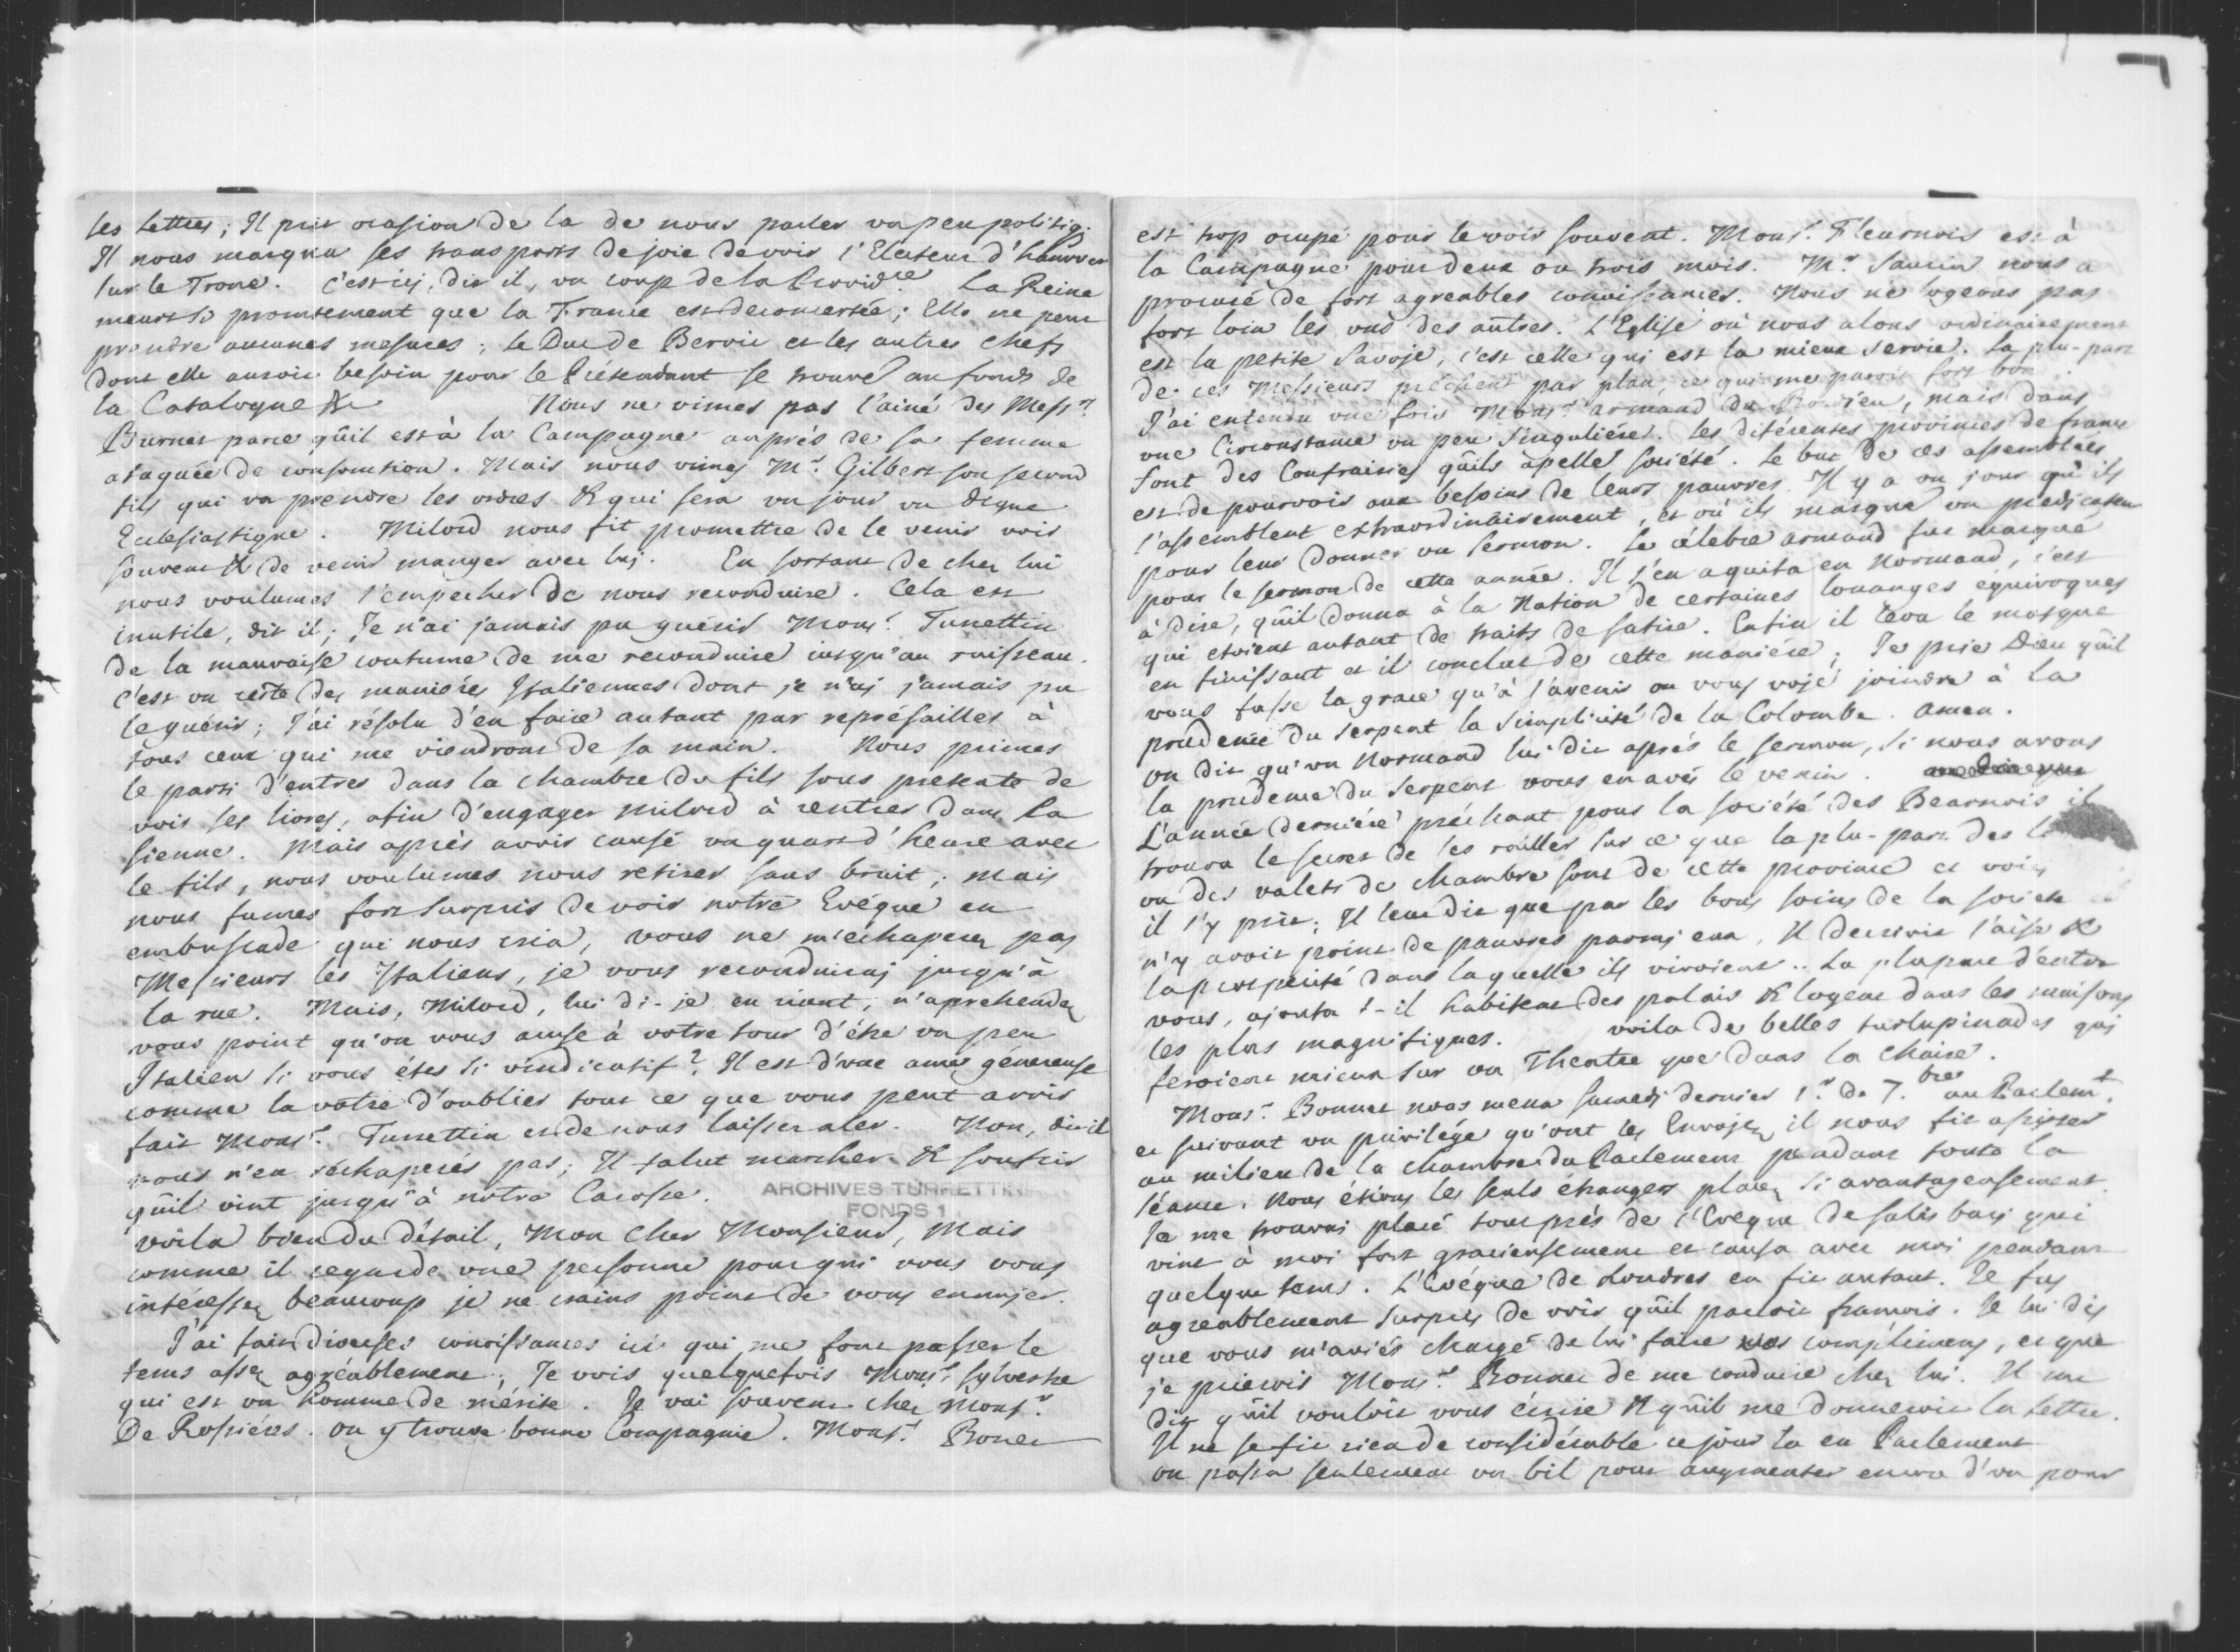 les Lettres; Il prit ocasion de la de nous parler un peu politiq;
Il nous marqua ses transports de joie de voir l'Electeur d'hanover
sur le Trone. C'est ici, dit il, un coup de la Provid.ce La Reine
meurt si promtement que la France est deconcertée; Elle ne peut
prendre aucunes mesures; Le Duc de Bervic et les autres chefs
dont elle auroit besoin pour le Prétendant se trouve au fonds de
la Catalogne &c Nous ne vimes pas l'ainé des Mess.rs
Burnet parce qûil est à la Campagne auprés de sa femme
ataquée de consomtion. Mais nous vimes Mr. Gilbert son second
fils qui va prendre les ordres & qui sera un jour un digne
Eclesiastique. Milord nous fit promettre de le venir voir
souvent & de venir manger avec luj. En sortant de chez lui
nous voulumes l'empecher de nous reconduire. Cela est
inutile, dit il; Je n'ai jamais pu guérir Monsr. Turrettin
de la mauvaise coutume de me reconduire jusqu'au ruisseau.
C'est un reste des maniéres Italiennes dont je n'aj jamais pu
le guérir; J'ai résolu d'en faire autant par représailles à
tous ceux qui me viendront de sa main. Nous primes
le parti d'entrer dans la chambre du fils sous pretexte de
voir ses livres, afin d'engager milord à rentrer dans la
sienne. Mais aprés avoir causé un quart d'heure avec
le fils, nous voulumes nous retirer sans bruit; mais
nous fumes fort surpris de voir notre Evéque en
embuscade qui nous cria, vous ne m'échaperez pas
Messieurs les Italiens, je vous reconduiraj jusqu'à
la rue. Mais, Milord, lui di-je en riant, n'aprehendez
vous point qu'on vous acuse à votre tour d'étre un peu
Italien si vous étes si vindicatif? Il est d'une ame généreuse
comme la votre d'oublier tout ce que vous peut avoir
fait Monsr. Turrettin et de nous laisser aler. Non, dit il
vous n'en réchaperés pas; Il falut marcher & soufrir
qûil vint jusqu'à notre Carosse.
ARCHIVES TURRETTINI
FONDS 1
voila bien du détail, Mon cher Monsieur, Mais
comme il regarde une personne pour qui vous vous
intéressez beaucoup je ne crains point de vous ennujer.
J'ai fait diverses conoissances ici qui me font passer le
tems assez agréablement; Je vois quelquefois Monsr. Sylvestre
qui est un homme de mérite. Je vai souvent chez Monsr.
De Rosiéres. on y trouve bonne Compagnie. Monsr. Bonet
est trop ocupé pour le voir souvent. Monsr. Fleurnois est à
la Campagne pour deux ou trois mois. Mr. Saurin nous a
procuré de fort agreables connoissances. Nous ne logeons pas
fort loin les uns des autres. L'Eglise où nous alons ordinairement
est la petite Savoje, c'est celle qui est la mieux servie. La plu-part
de ces Messieurs préchent par plan, ce qui me paroit fort bon.
J'ai entendu une fois Monsr. armand du, mais dans
une Circonstance un peu singuliére. Les diférentes provinces de france
font des Confrairies qûils apelle société. Le but de ces assemblées
est de pourvoir aux besoins de leurs pauvres. Il y a un jour qu'ils
s'assemblent extraordinairement, et où ils marque un predicateur
pour leur donner un sermon. Le célebre armand fut marqué
pour le sermon de cette année. Il s'en aquita en Normand, c'est
à dire, qûil donna à la Nation de certaines louanges équivoques
qui etoient autant de traits de satire. Enfin il leva le masque
en finissant et il conclut de cette maniére; Je prie Dieu qûil
vous fasse la grace qu'à l'avenir on vous voje joindre à la
prudence du serpent la simplicité de la Colombe. amen.
on dit qu'un Normand lui dit aprés le sermon, si nous avons
la prudence du serpent vous en avés le venin.
L'année derniére préchant pour la société des Bearnois il
trouva le secret de les railler sur ce que la plu-part des
ou des valets de chambre sont de cette province et voici
il s'y prit; Il leur dit que par les bons soins de la societe
n'y avoit point de pauvres parmj eux, Il decrivit l'aise &
la prosperité dans laquelle ils vivoient.. La plupart d'entre
vous, ajouta t-il habitent des palais & logent dans les maisons
les plus magnifiques. voila de belles turlupinades qui
feroient mieux sur un Theatre que dans la chaire.
Monsr. Bonnet nous mena samedj dernier 1.r de 7.bre au Parlemt.
et suivant un privilége qu'ont les Envojez il nous fit assister
au milieu de la chambre du Parlement pendant toute la
séance. Nous étions les seuls étrangers placez si avantageusement.
Je me trouvai placé tout prés de l'Evéque de salisburj qui
vint à moi fort gracieusement et causa avec moi pendant
quelque tems. L'Evéque de Londres en fit autant. Je fus
agreablement surpris de voir qûil parloit francois. Je lui dis
que vous m'aviés chargé de lui faire vos complimens, et que
je prierois Monsr. Bonnet de me conduire chez lui. Il me
dit qûil vouloit vous écrire & qûil me donneroit la Lettre.
Il ne se fit rien de considérable ce jour la en Parlement
on passa seulement un bil pour augmenter encore d'un pour